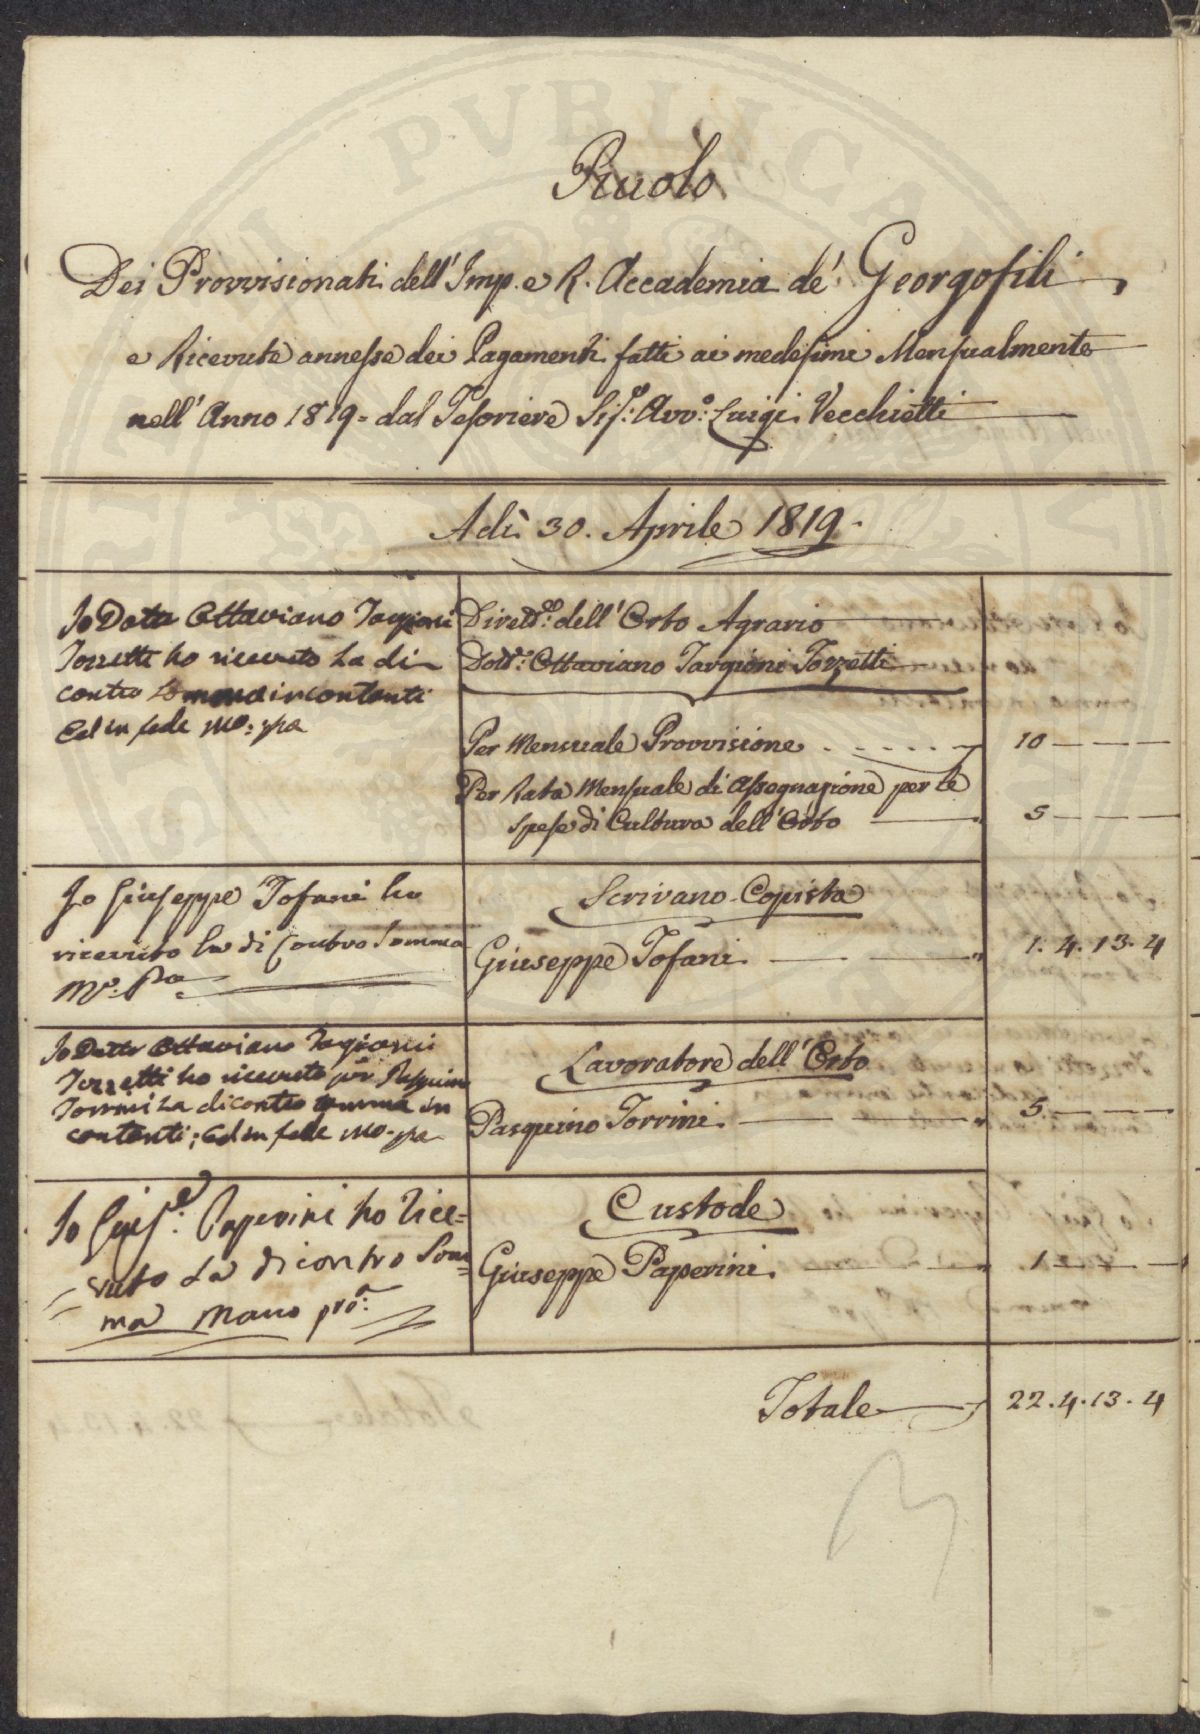 Ruolo
Dei Provvisionati dell'Imp. e R. Accademia de' Georgofili
e Ricevute annesse dei Pagamenti fatti ai medesimi Mensualmente
nell' Anno 1819 = dal Tesoriere Sig.e Avv.o: Luigi Vecchietti
Adì 30. Aprile 1819.
Io Dotto Ottaviano Targioni
Tozzetti ho ricevuto La di
contro Somma in contanti
Ed in fede mo: ppa
Dirett.e dell' Orto Agrario
Dott.: Ottaviano Targioni Tozzetti
Per Mensuale Provvisione 10
Per Rata Mensuale di Assegnazione per le
Spese di Cultura dell' Orto 5
Io Giuseppe Tofani ho
ricevuto la di Contro Somma
Mo. Pa
Scrivano Copista
Giuseppe Tofani 1. 4. 13. 4
Io Dotto Ottaviano Targioni
Tozzetti ho ricevuto per Pasquino
Torrini La di contro somma in
contanti; Ed in fede mo. ppa
Lavoratore dell' Orto
Pasquino Torrini. 5.
Io Gius.e: Paperini ho Rice=
vuto La di contro Som=
ma Mano pro:
Custode
Giuseppe Paperini. 1
Totale 22. 4. 13. 4